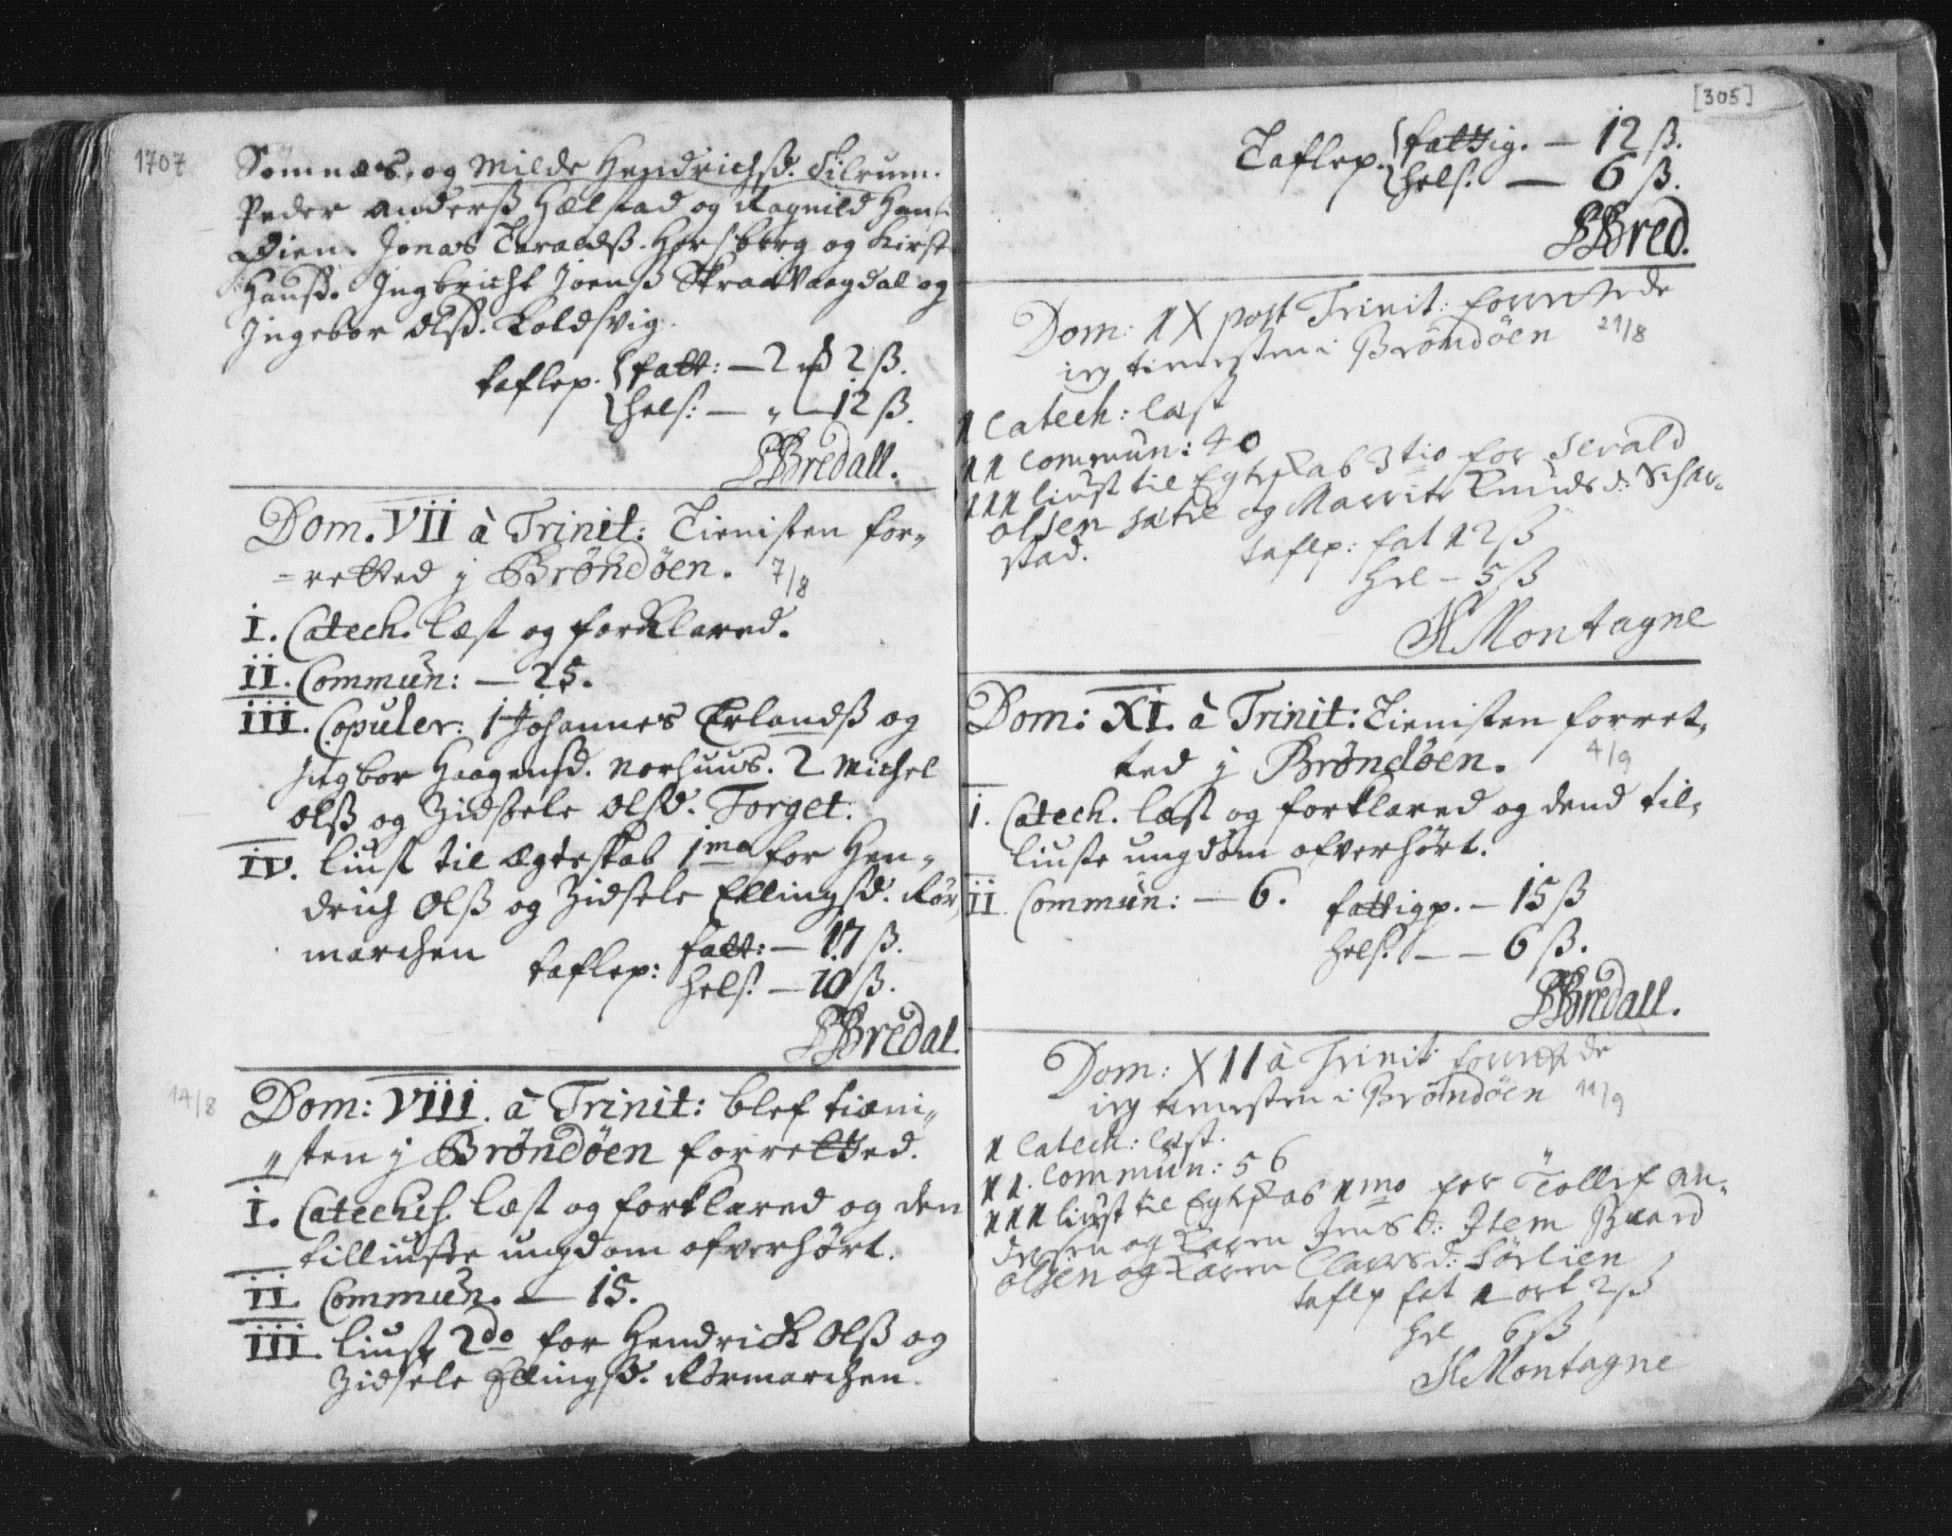 1707
Sömnæs, og Milde Hendrichsd. Silrum.
Peder Anderß Hælstad og Ragnild Hans
Dien. Jonas Taraldß. Horsberg og Kirst
Hansd. Ingbricht Joenß Skraavaagdal og
Ingebor Olsd. Koldsvig.
taflep. fatt: — 2 2 ß.
hels: — „ — 12 ß.
Bredall.
Dom. VII à Trinit: Tienisten for„
=retted j Bröndöen. 7/8
I. Catech. læst og forklared.
II. Commun: — 25.
III. Copuler: 1 Johannes Erlandß og
Ingbor Haagensd. Norhuus. 2 Michel
Olß og Zidsele Olsd. Torget.
IV. liust til ægteskab 1mo for Hen„
drich Olß og Zidsele Ellingsd. Rör
marchen taflep: fatt: — 17 ß.
hels: — 10 ß.
Bredal.
14/8
Dom: VIII. à Trinit: blef tieni„
„sten j Bröndöen forretted.
I. Catechis. læst og forklared og den
tilliuste ungdom ofverhört.
II. Commun. — 15.
III. liust 2do for Hendrick Olß og
Zidsele Ellingsd. Rörmarchen.
[305]
Taflep. fattig. — 12 ß.
hels: — 6 ß.
Bred.
Dom: IX post Trinit: forrettede
ieg tienesten i Bröndöen 21/8
I Catech: læst
II Commun: 40
III liust til Egteskab 3tio for Jerald
Olsen Sætre og Marrite Knudsd: Schar„
stad. taflp: fat 12 ß
hel — 5 ß
Montagne
Dom: XI. à Trinit: Tienisten forret„
ted j Bröndöen. 4/9
I. Catech. læst og forklared og dend til„
liuste ungdom ofverhört.
II. Commun: — 6. fattigp. — 15 ß
hels: — — 6 ß.
Bredall.
Dom: XII à Trinit: forrettede
ieg tienesten i Bröndöen 11/9
I Catech: læst.
II. Commun: 56
III liust til Egteskab 1mo for Tollef An„
dersen og Karen Jensd: Item Baard
Olsen og Karen Clausd: Sörlien
taflp fat 1 ort 2 ß
hel 6 ß
Montagne